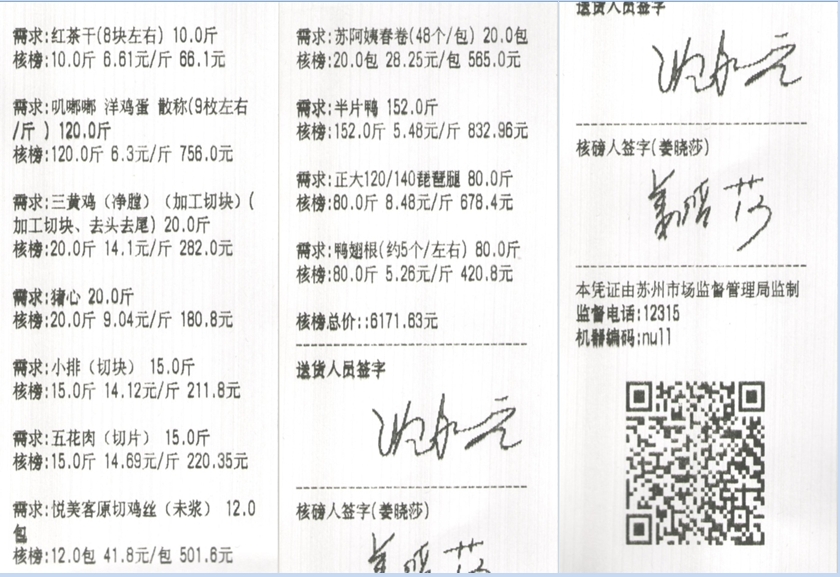 需求:红茶干(8块左右) 10.0斤
核榜:10.0斤 6.61元/斤 66.1元
需求:叽嘟嘟 洋鸡蛋 散称(9枚左右
/斤 ) 120.0斤
核榜:120.0斤 6.3元/斤 756.0元
需求:三黄鸡（净膛）（加工切块）(
加工切块、去头去尾) 20.0斤
核榜:20.0斤 14.1元/斤 282.0元
需求:猪心 20.0斤
核榜:20.0斤 9.04元/斤 180.8元
需求:小排（切块） 15.0斤
核榜:15.0斤 14.12元/斤 211.8元
需求:五花肉（切片） 15.0斤
核榜:15.0斤 14.69元/斤 220.35元
需求:悦美客原切鸡丝（未浆） 12.0
包
核榜:12.0包 41.8元/包 501.6元
需求:苏阿姨春卷(48个/包) 20.0包
核榜:20.0包 28.25元/包 565.0元
需求:半片鸭 152.0斤
核榜:152.0斤 5.48元/斤 832.96元
需求:正大120/140琵琶腿 80.0斤
核榜:80.0斤 8.48元/斤 678.4元
需求:鸭翅根(约5个/左右) 80.0斤
核榜:80.0斤 5.26元/斤 420.8元
核榜总价::6171.63元
送货人员签字
核磅人签字(姜晓莎)
送货人员签字
核磅人签字(姜晓莎)
姜晓莎
本凭证由苏州市场监督管理局监制
监督电话:12315
机器编码:null